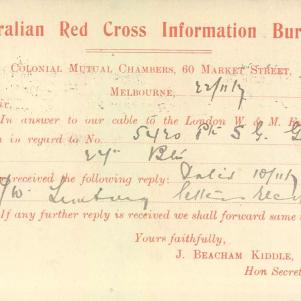 ralian Red Cross Information Bur
Colonial Mutual Chambers, 60 Market Street,
Melbourne, 22/11/17
ir,
In answer to our cable to the London W & M B
n in regard to No. 5420 Pte S. G. G
24th Bn
received the following reply: Dated 10/11/17
letters
If any further reply is received we shall forward same
Yours faithfully,
J. BEACHAM KIDDLE,
Hon Secre